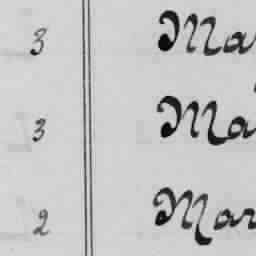 3 Ma
3 Ma
2 Mar